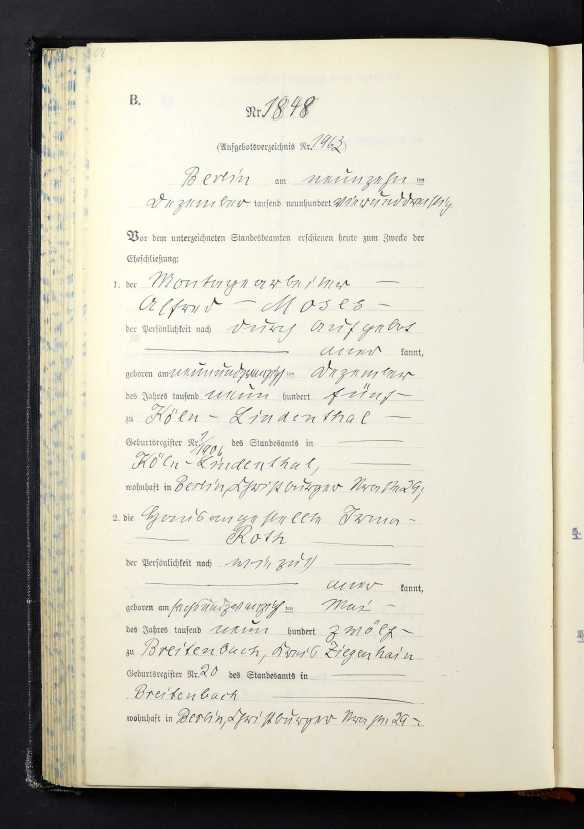 B.
Nr. 1848
(Aufgebotsverzeichnis Nr. 1963)
Berlin am neunzehnten
Dezember tausend neunhundert vierunddreißig
Vor dem unterzeichneten Standesbeamten erschienen heute zum Zwecke der
Eheschließung:
1. der Montagearbeiter —
Alfred — Moses —
der Persönlichkeit nach durch Aufgebot
— aner kannt,
geboren am neunundzwanzigsten Dezember
des Jahres tausend neun hundert fünf —
zu Köln - Lindenthal —
Geburtsregister Nr. 3/1906 des Standesamts in —
Köln-Lindenthal,
wohnhaft in Berlin, Christburger Straße 29,
2. die Hausangestellte Irma —
— Roth —
der Persönlichkeit nach wie zu 1 —
— aner kannt,
geboren am sechsundzwanzigsten Mai —
des Jahres tausend neun hundert zwölf —
zu Breitenbach, Kreis Ziegenhain
Geburtsregister Nr. 20 des Standesamts in —
Breitenbach —
wohnhaft in Berlin, Christburger Straße 29 —.